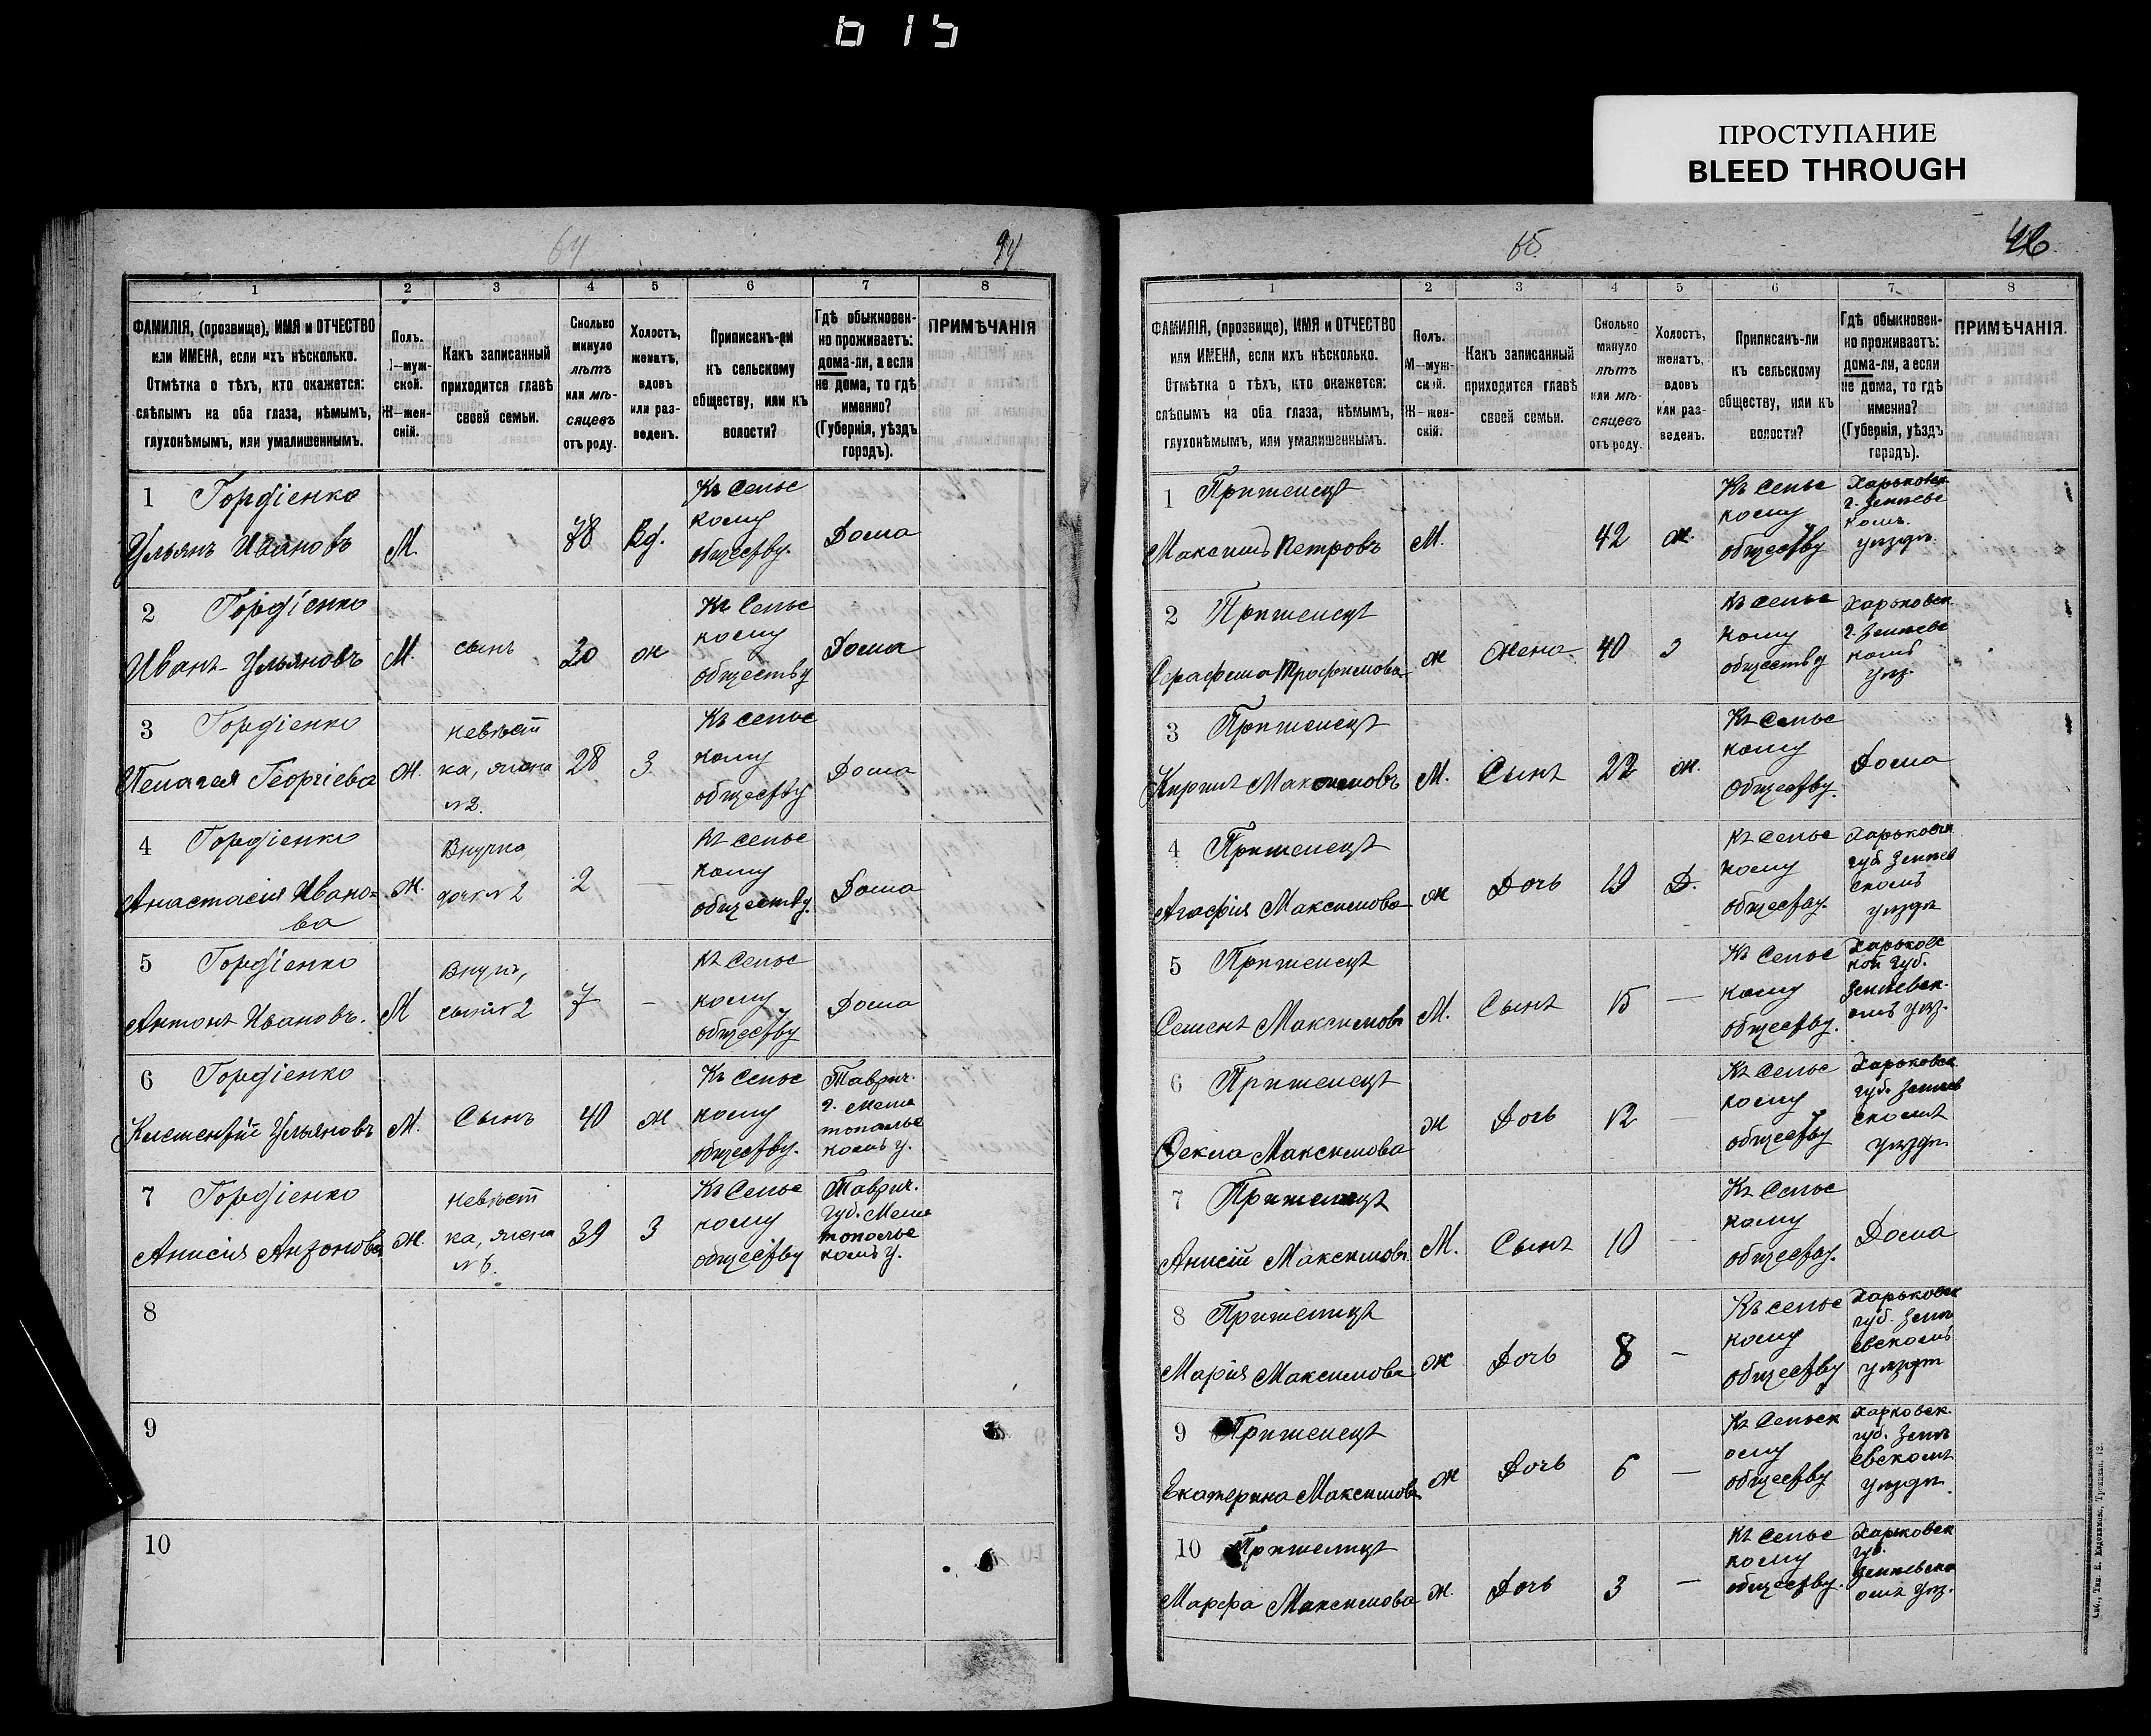 615
ПРОСТУПАНИЕ
BLEED THROUGH
64
1 2 3 4 5 6 7 8
ФАМИЛІЯ, (прозвище), ИМЯ и ОТЧЕСТВО
или ИМЕНА, если ихъ нѣсколько.
Отмѣтка о тѣхъ, кто окажется:
слѣпымъ на оба глаза, нѣмымъ,
глухонѣмымъ, или умалишеннымъ.
Полъ.
М—муж-
ской.
Ж—жен-
скій.
Какъ записанный
приходится главѣ
своей семьи.
Сколько
минуло
лѣтъ
или мѣ-
сяцевъ
отъ роду.
Холостъ,
женатъ,
вдовъ
или раз-
веденъ.
Приписанъ-ли
къ сельскому
обществу, или къ
волости?
Гдѣ обыкновен-
но проживаетъ:
дома-ли, а если
не дома, то гдѣ
именно?
(Губернія, уѣздъ
городъ).
ПРИМѢЧАНІЯ
1 Гордіенко
Ульянъ Ивановъ
М.
78
Вд.
Къ сельс
кому
обществу.
Дома
2 Гордіенко
Иванъ Ульяновъ
М.
сынъ
30
ж
Къ Сельс
кому
обществу
Дома
3 Гордіенко
Пелагея Георгіева
Ж.
невѣст
ка, жена
№2.
28
З
Къ сельс
кому
обществу
Дома
4 Гордіенко
Анастасія Ивано=
ва
Ж.
Внучка,
дочь №2
2
—
Къ сельс
кому
обществу.
Дома
5 Гордіенко
Антонъ Ивановъ.
М
Внукъ,
сынъ №2
7
—
Къ Сельс
кому
обществу
Дома
6 Гордіенко
Климентій Ульяновъ
М.
Сынъ
40
ж
Къ Сельс
кому
обществу.
Таврич.
г. Мели
топольс
комъ у.
7 Гордіенко
Анисія Антонова
Ж.
невѣст
ка, жена
№6.
39
З
Къ Сельс
кому
обществу
Таврич.
губ. Мели
топольс
комъ у.
8
9
10
65
46
1 2 3 4 5 6 7 8
ФАМИЛІЯ, (прозвище), ИМЯ и ОТЧЕСТВО
или ИМЕНА, если ихъ нѣсколько.
Отмѣтка о тѣхъ, кто окажется:
слѣпымъ на оба глаза, нѣмымъ,
глухонѣмымъ, или умалишеннымъ.
Полъ.
М—муж-
ской.
Ж—жен-
скій.
Какъ записанный
приходится главѣ
своей семьи.
Сколько
минуло
лѣтъ
или мѣ-
сяцевъ
отъ роду.
Холостъ,
женатъ,
вдовъ
или раз-
веденъ.
Приписанъ-ли
къ сельскому
обществу, или къ
волости?
Гдѣ обыкновен-
но проживаетъ:
дома-ли, а если
не дома, то гдѣ
именно?
(Губернія, уѣздъ
городъ).
ПРИМѢЧАНІЯ.
1 Пришелецъ
Максимъ Петровъ
М.
42
ж.
Къ сельс
кому
обществу
Харьковск.
г. Зміевс
комъ.
уѣздѣ.
2 Пришелецъ
Серафима Трофимова
ж
Жена
40
З
Къ сельс
кому
обществу
Харьковск.
г. Зміевс
комъ
уѣз.
3 Пришелецъ
Кирилъ Максимовъ
М.
Сынъ
22
ж.
Къ Сельс
кому
Обществу.
Дома
4 Пришелецъ
Агафія Максимова
ж
Дочь
19
Д.
Къ сельс
кому
обществу.
Харьковск
губ Зміев
скомъ
уѣздѣ
5 Пришелецъ
Семенъ Максимовъ
М.
Сынъ
15
—
Къ Сельс
кому
обществу.
Харьковс
кой губ.
Зміевск.
омъ уѣз.
6 Пришелецъ
Ѳекла Максимова
ж
Дочь
12
—
Къ Сельс
кому
обществу
Харьковск
губ. Зміев
скомъ
уѣздѣ
7 Пришелецъ
Анисій Максимовъ
М.
Сынъ
10
—
Къ Сельс
кому
обществу.
Дома
8 Пришелецъ
Марія Максимова
ж
Дочь
8
—
Къ сельс
кому
обществу
Харьковск
губ. Змі
евскомъ
уѣздѣ
9 Пришелецъ
Екатерина Максимова
ж
Дочь
6
—
Къ Сельск
ому
обществу
Харковск.
губ. Змі
евскомъ
уѣздѣ.
10 Пришелецъ
Марфа Максимова
ж.
Дочь
3
—
Къ Сельс
кому
обществу.
Харьковск
губ.
Зміевско
омъ уѣз.